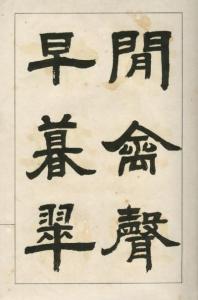 閒禽聲
早暮翠